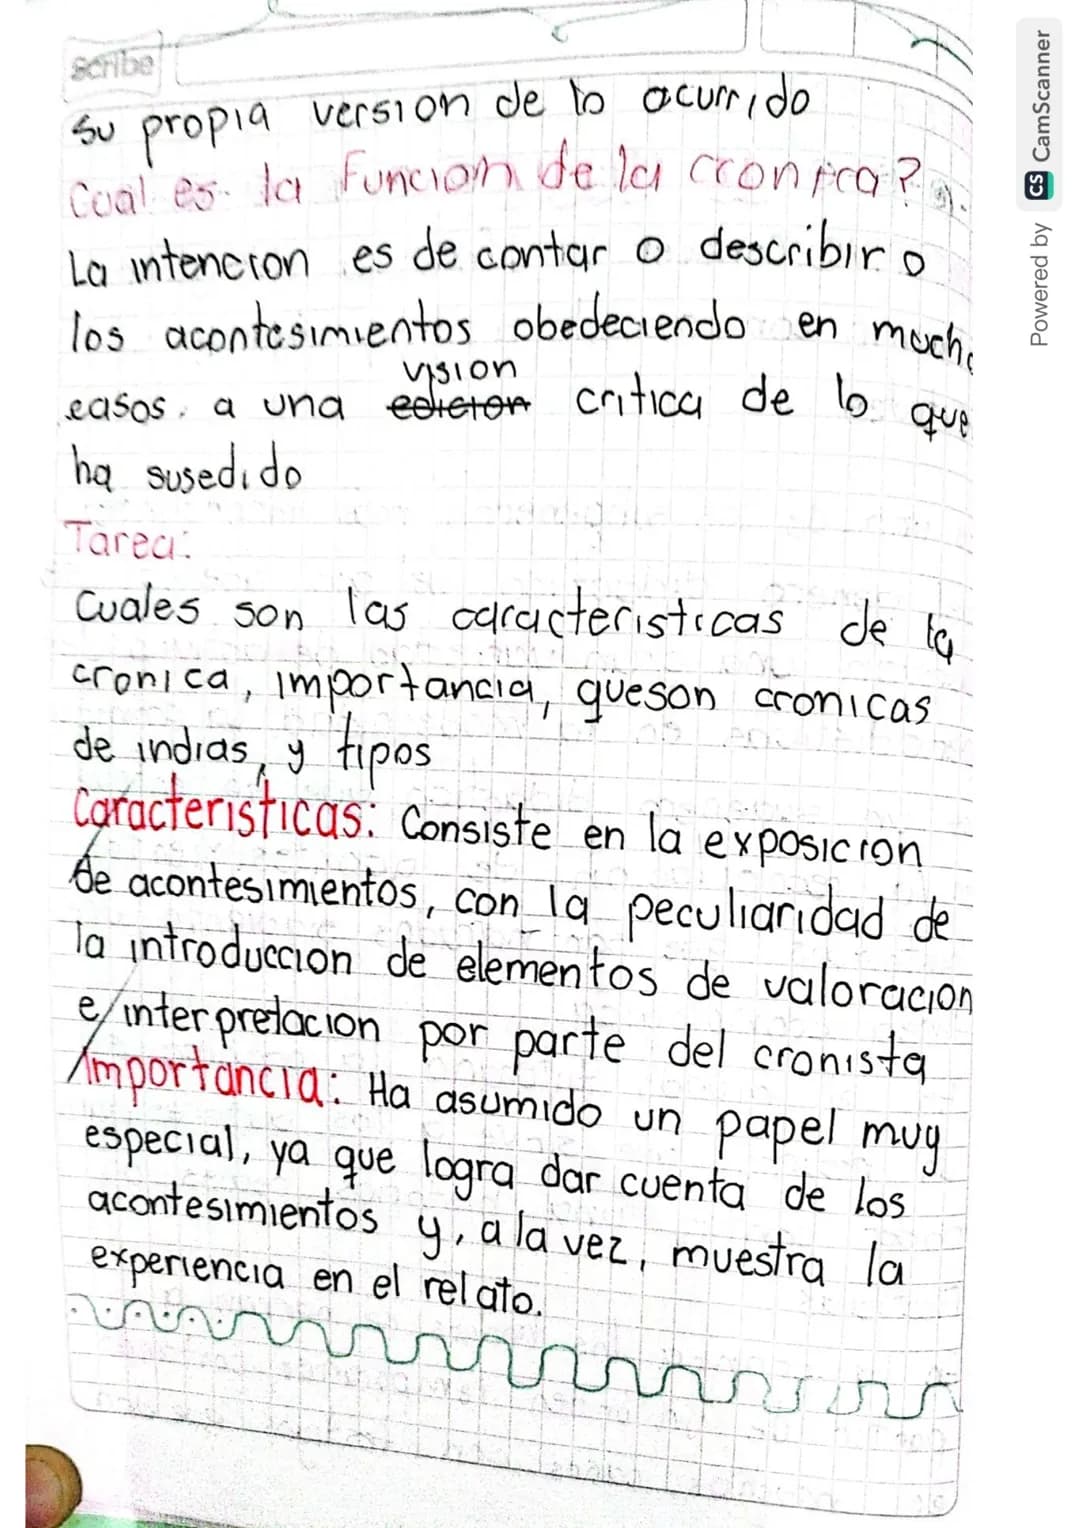 scribe
su propia version de lo ocurrido
Cual es la Funcion de la cronica?
La intencion es de contar o describir o
los acontesimientos obedeciendo en mucho
casos a una edicion vision critica de lo que
ha susedido
Tarea:
Cuales son las caracteristicas de la
cronica, importancia, queson cronicas
de indias, y tipos
Caracteristicas: Consiste en la exposicion
de acontesimientos, con la peculiaridad de
la introduccion de elementos de valoracion
e interpretacion por parte del cronista
Importancia: Ha asumido un papel muy
especial, ya que logra dar cuenta de los
acontesimientos y, a la vez, muestra la
experiencia en el relato.
Powered by CS CamScanner